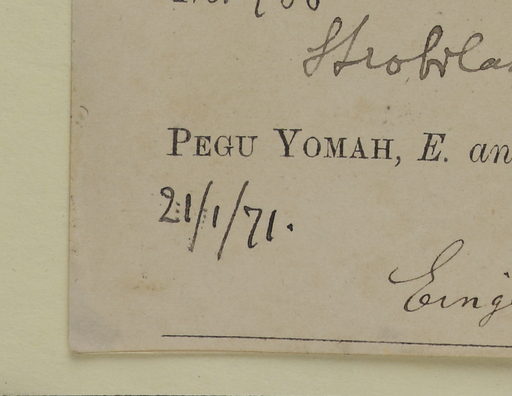 Strobila
PEGU YOMAH, E. an
21/1/71.
Eing